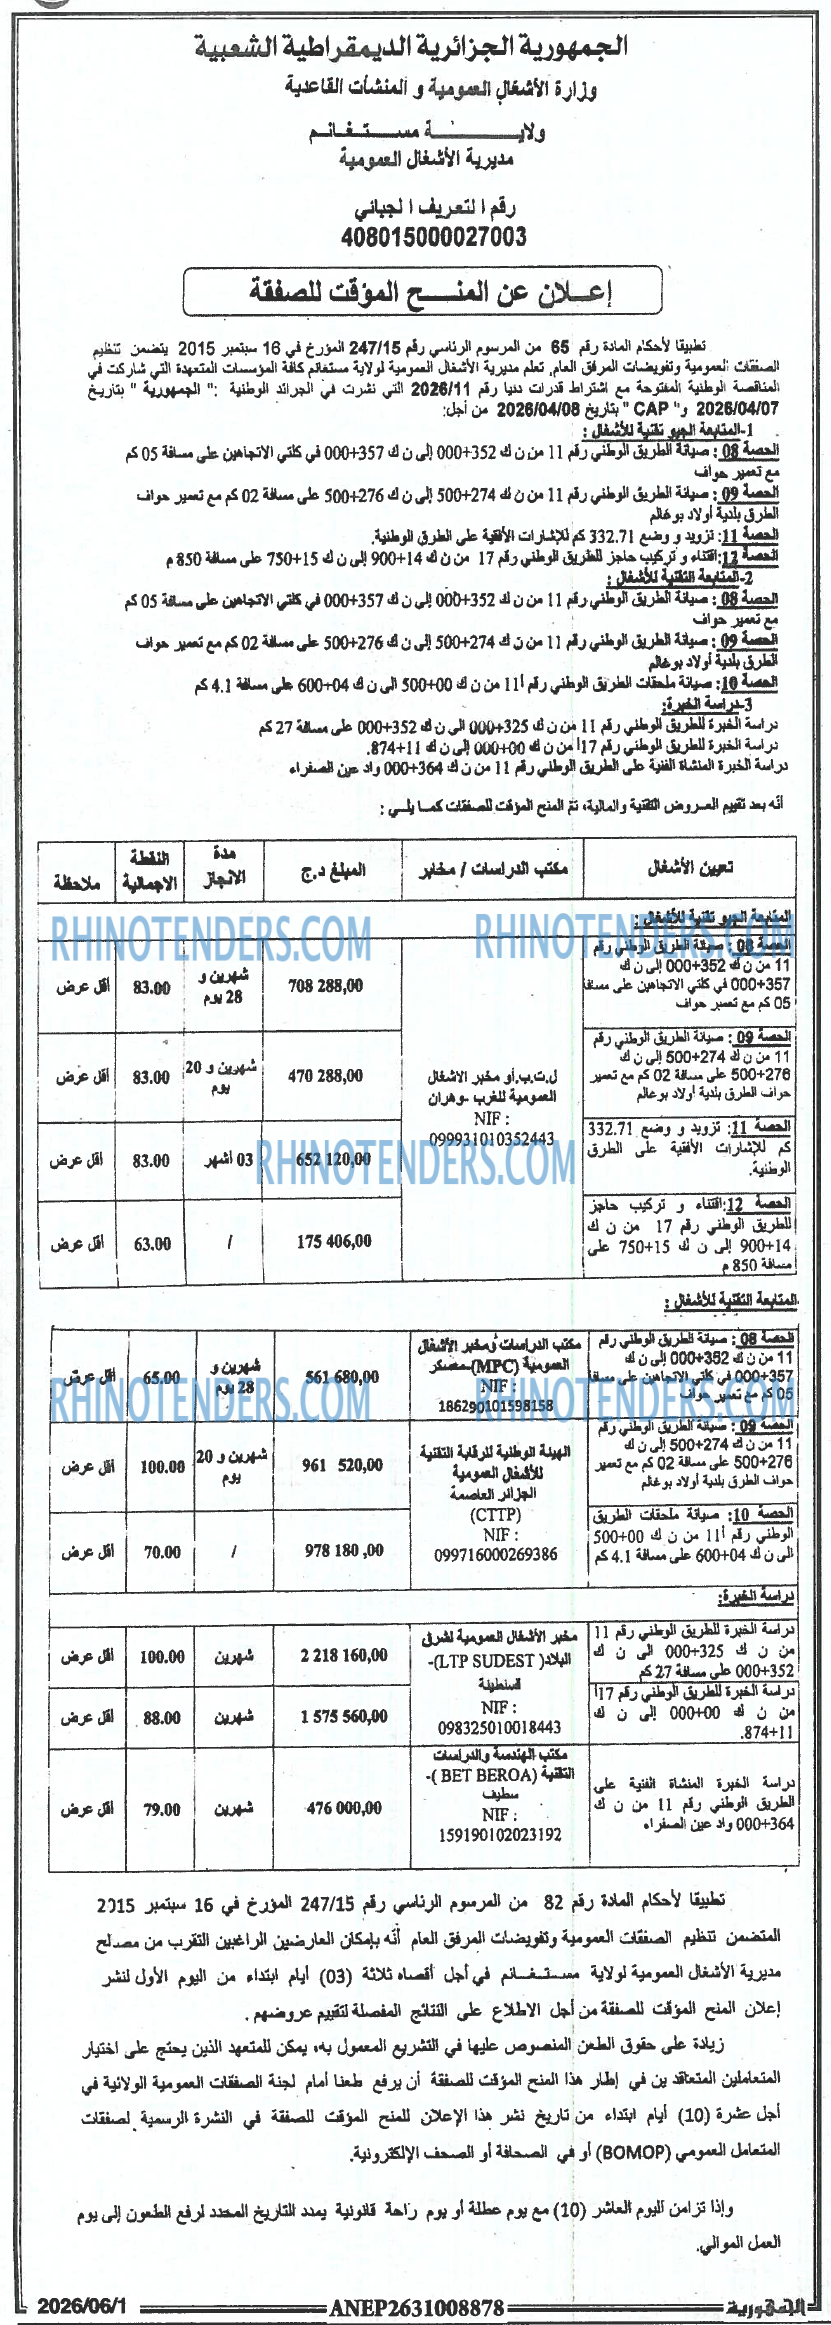 الجمهورية الجزائرية الديمقراطية الشعبية
وزارة الأشغال العمومية و المنشآت القاعدية
ولايـــــــــة مستـغـانـم
مديرية الأشغال العمومية
رقم التعريف الجبائي
408015000027003
إعـلان عن المنـــح المؤقت للصفقة
تطبيقا لأحكام المادة رقم 65 من المرسوم الرئاسي رقم 247/15 المؤرخ في 16 سبتمبر 2015 يتضمن تنظيم
الصفقات العمومية وتفويضات المرفق العام, تعلم مديرية الأشغال العمومية لولاية مستغانم كافة المؤسسات المتعهدة التي شاركت في
المناقصة الوطنية المفتوحة مع اشتراط قدرات دنيا رقم 2026/11 التي نشرت في الجرائد الوطنية :" الجمهورية " بتاريخ
2026/04/07 و" CAP " بتاريخ 2026/04/08 من أجل:
1-المتابعة الجيو تقنية للأشغال :
الحصة 08 : صيانة الطريق الوطني رقم 11 من ن ك 352+000 إلى ن ك 357+000 في كلتي الاتجاهين على مسافة 05 كم
مع تعمير حواف
الحصة 09 : صيانة الطريق الوطني رقم 11 من ن ك 274+500 إلى ن ك 276+500 على مسافة 02 كم مع تعمير حواف
الطرق بلدية أولاد بوغالم
الحصة 11: تزويد و وضع 332.71 كم للإشارات الأفقية على الطرق الوطنية.
الحصة 12: اقتناء و تركيب حاجز للطريق الوطني رقم 17 من ن ك 14+900 إلى ن ك 15+750 على مسافة 850 م
2-المتابعة التقنية للأشغال :
الحصة 08 : صيانة الطريق الوطني رقم 11 من ن ك 352+000 إلى ن ك 357+000 في كلتي الاتجاهين على مسافة 05 كم
مع تعمير حواف
الحصة 09 : صيانة الطريق الوطني رقم 11 من ن ك 274+500 إلى ن ك 276+500 على مسافة 02 كم مع تعمير حواف
الطرق بلدية أولاد بوغالم
الحصة 10: صيانة ملحقات الطريق الوطني رقم 11أ من ن ك 00+500 الى ن ك 04+600 على مسافة 4.1 كم
3-دراسة الخبرة:
دراسة الخبرة للطريق الوطني رقم 11 من ن ك 325+000 الى ن ك 352+000 على مسافة 27 كم
دراسة الخبرة للطريق الوطني رقم 17أ من ن ك 00+000 إلى ن ك 11+874.
دراسة الخبرة المنشاة الفنية على الطريق الوطني رقم 11 من ن ك 364+000 واد عين الصفراء
أنه بعد تقييم العروض التقنية والمالية، تم المنح المؤقت للصفقات كما يلي :
تعيين الأشغال | مكتب الدراسات / مخابر | المبلغ د.ج | مدة الانجاز | النقطة الاجمالية | ملاحظة
المتابعة الجيو تقنية للأشغال :
RHINOTENDERS.COM RHINOTENDERS.COM
الحصة 08 : صيانة الطريق الوطني رقم
11 من ن ك 352+000 إلى ن ك
357+000 في كلتي الاتجاهين على مسافة
05 كم مع تعمير حواف
708 288,00 | شهرين و 28 يوم | 83.00 | أقل عرض
الحصة 09 : صيانة الطريق الوطني رقم
11 من ن ك 274+500 إلى ن ك
276+500 على مسافة 02 كم مع تعمير
حواف الطرق بلدية أولاد بوغالم
470 288,00 | شهرين و 20 يوم | 83.00 | أقل عرض
ل.ت.ب.أو مخبر الاشغال
العمومية للغرب -وهران
NIF :
099931010352443
الحصة 11: تزويد و وضع 332.71
كم للإشارات الأفقية على الطرق
الوطنية.
652 120,00 | 03 أشهر | 83.00 | أقل عرض
RHINOTENDERS.COM
الحصة 12: اقتناء و تركيب حاجز
للطريق الوطني رقم 17 من ن ك
14+900 إلى ن ك 15+750 على
مسافة 850 م
175 406,00 | / | 63.00 | أقل عرض
المتابعة التقنية للأشغال :
الحصة 08 : صيانة الطريق الوطني رقم
11 من ن ك 352+000 إلى ن ك
357+000 في كلتي الاتجاهين على مسافة
05 كم مع تعمير حواف
مكتب الدراسات/ ومخبر الأشغال
العمومية (MPC)-معسكر
NIF :
186290101598158
561 680,00 | شهرين و 28 يوم | 65.00 | أقل عرض
RHINOTENDERS.COM RHINOTENDERS.COM
الحصة 09 : صيانة الطريق الوطني رقم
11 من ن ك 274+500 إلى ن ك
276+500 على مسافة 02 كم مع تعمير
حواف الطرق بلدية أولاد بوغالم
الهيئة الوطنية للرقابة التقنية
للأشغال العمومية
الجزائر العاصمة
(CTTP)
NIF :
099716000269386
961 520,00 | شهرين و 20 يوم | 100.00 | أقل عرض
الحصة 10: صيانة ملحقات الطريق
الوطني رقم 11أ من ن ك 00+500
الى ن ك 04+600 على مسافة 4.1 كم
978 180 ,00 | / | 70.00 | أقل عرض
دراسة الخبرة:
دراسة الخبرة للطريق الوطني رقم 11
من ن ك 325+000 الى ن ك
352+000 على مسافة 27 كم
مخبر الأشغال العمومية لشرق
البلاد( LTP SUDEST)-
قسنطينة
NIF :
098325010018443
2 218 160,00 | شهرين | 100.00 | أقل عرض
دراسة الخبرة للطريق الوطني رقم 17أ
من ن ك 00+000 إلى ن ك
11+874.
1 575 560,00 | شهرين | 88.00 | أقل عرض
دراسة الخبرة المنشاة الفنية على
الطريق الوطني رقم 11 من ن ك
364+000 واد عين الصفراء
مكتب الهندسة والدراسات
التقنية (BET BEROA )-
سطيف
NIF :
159190102023192
476 000,00 | شهرين | 79.00 | أقل عرض
تطبيقا لأحكام المادة رقم 82 من المرسوم الرئاسي رقم 247/15 المؤرخ في 16 سبتمبر 2015
المتضمن تنظيم الصفقات العمومية وتفويضات المرفق العام أنه بإمكان العارضين الراغبين التقرب من مصالح
مديرية الأشغال العمومية لولاية مستـغـانم في أجل أقصاه ثلاثة (03) أيام ابتداء من اليوم الأول لنشر
إعلان المنح المؤقت للصفقة من أجل الاطلاع على النتائج المفصلة لتقييم عروضهم .
زيادة على حقوق الطعن المنصوص عليها في التشريع المعمول به، يمكن للمتعهد الذين يحتج على اختيار
المتعاملين المتعاقد ين في إطار هذا المنح المؤقت للصفقة أن يرفع طعنا أمام لجنة الصفقات العمومية الولائية في
أجل عشرة (10) أيام ابتداء من تاريخ نشر هذا الإعلان للمنح المؤقت للصفقة في النشرة الرسمية لصفقات
المتعامل العمومي (BOMOP) أو في الصحافة أو الصحف الإلكترونية.
وإذا تزامن اليوم العاشر (10) مع يوم عطلة أو يوم راحة قانونية يمدد التاريخ المحدد لرفع الطعون إلى يوم
العمل الموالي.
الجمهورية ANEP2631008878 2026/06/1